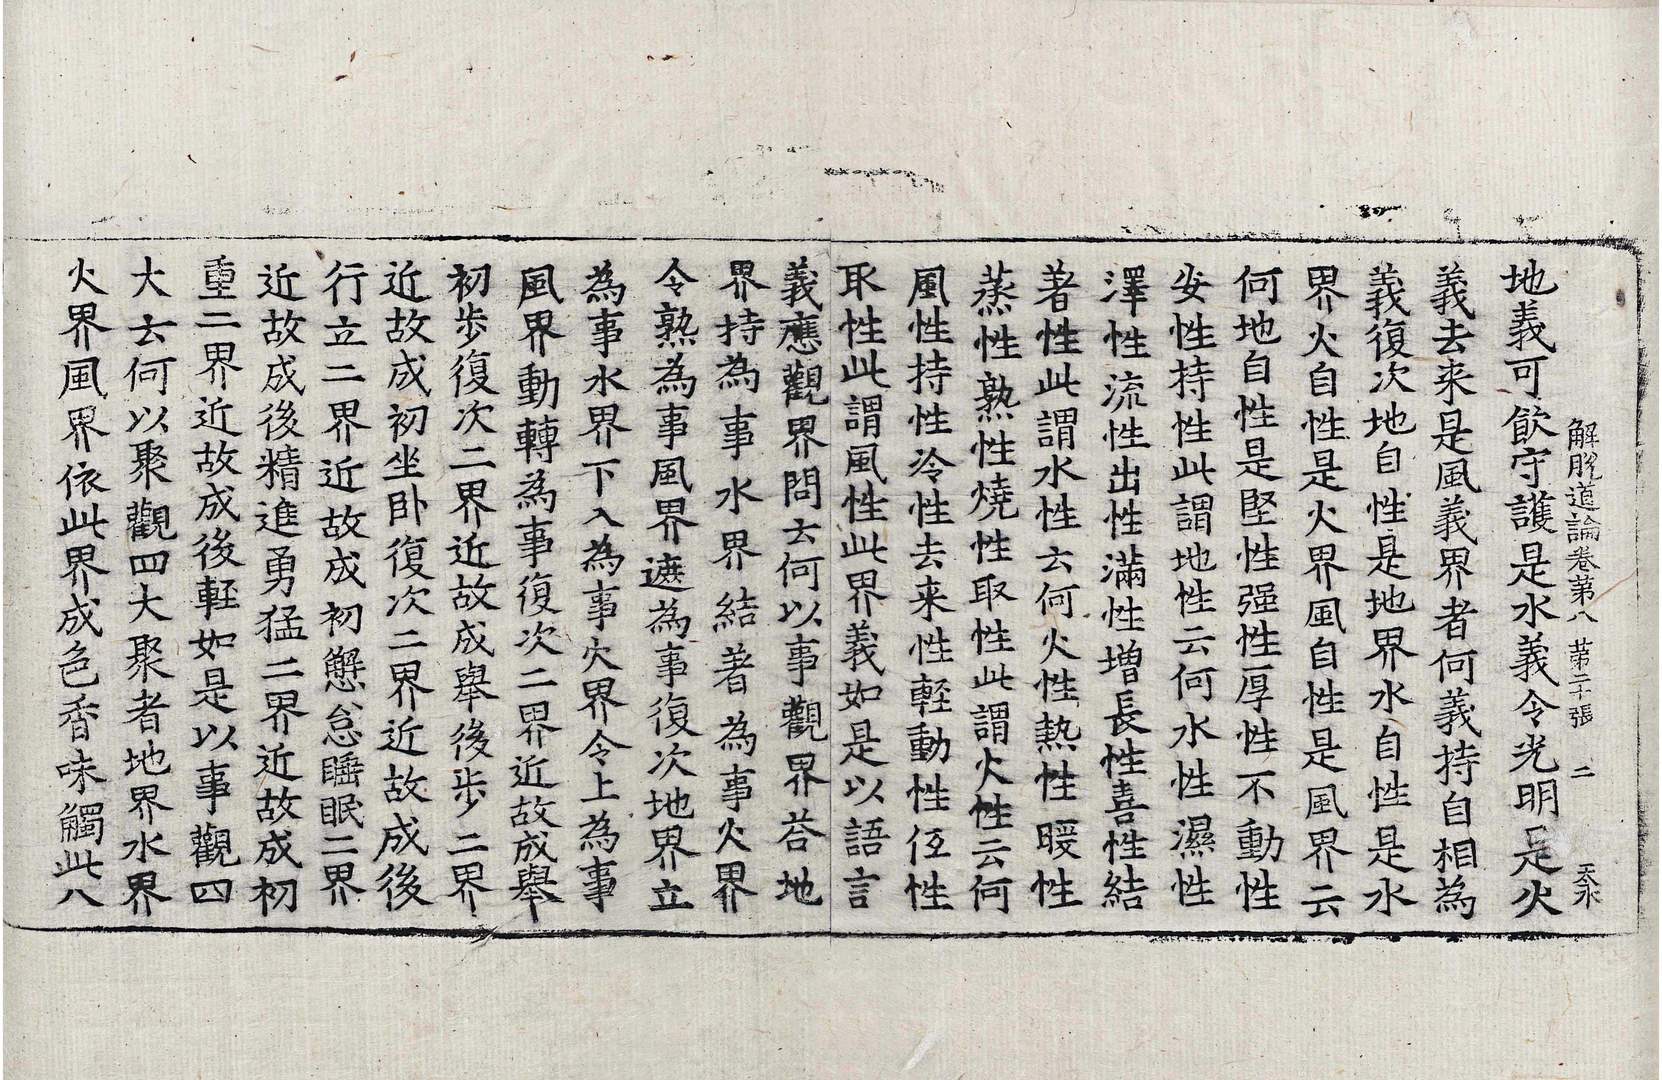 解脫道論卷第八 第二十張 二 天水
地義可飮守護是水義令光明是火
義去来是風義界者何義持自相為
義復次地自性是地界水自性是水
界火自性是火界風自性是風界云
何地自性是堅性强性厚性不動性
安性持性此謂地性云何水性濕性
澤性流性出性滿性增長性喜性結
著性此謂水性云何火性熱性暖性
蒸性熟性燒性取性此謂火性云何
風性持性冷性去来性輕動性伍性
取性此謂風性此界義如是以語言
義應觀界問云何以事觀界荅地
界持為事水界結著為事火界
令熟為事風界遮為事復次地界立
為事水界下入為事火界令上為事
風界動轉為事復次二界近故成舉
初步復次二界近故成舉後步二界
近故成初坐卧復次二界近故成後
行立二界近故成初懈怠睡眠二界
近故成後精進勇猛二界近故成初
重二界近故成後輕如是以事觀四
大云何以聚觀四大聚者地界水界
火界風界依此界成色香味觸此八